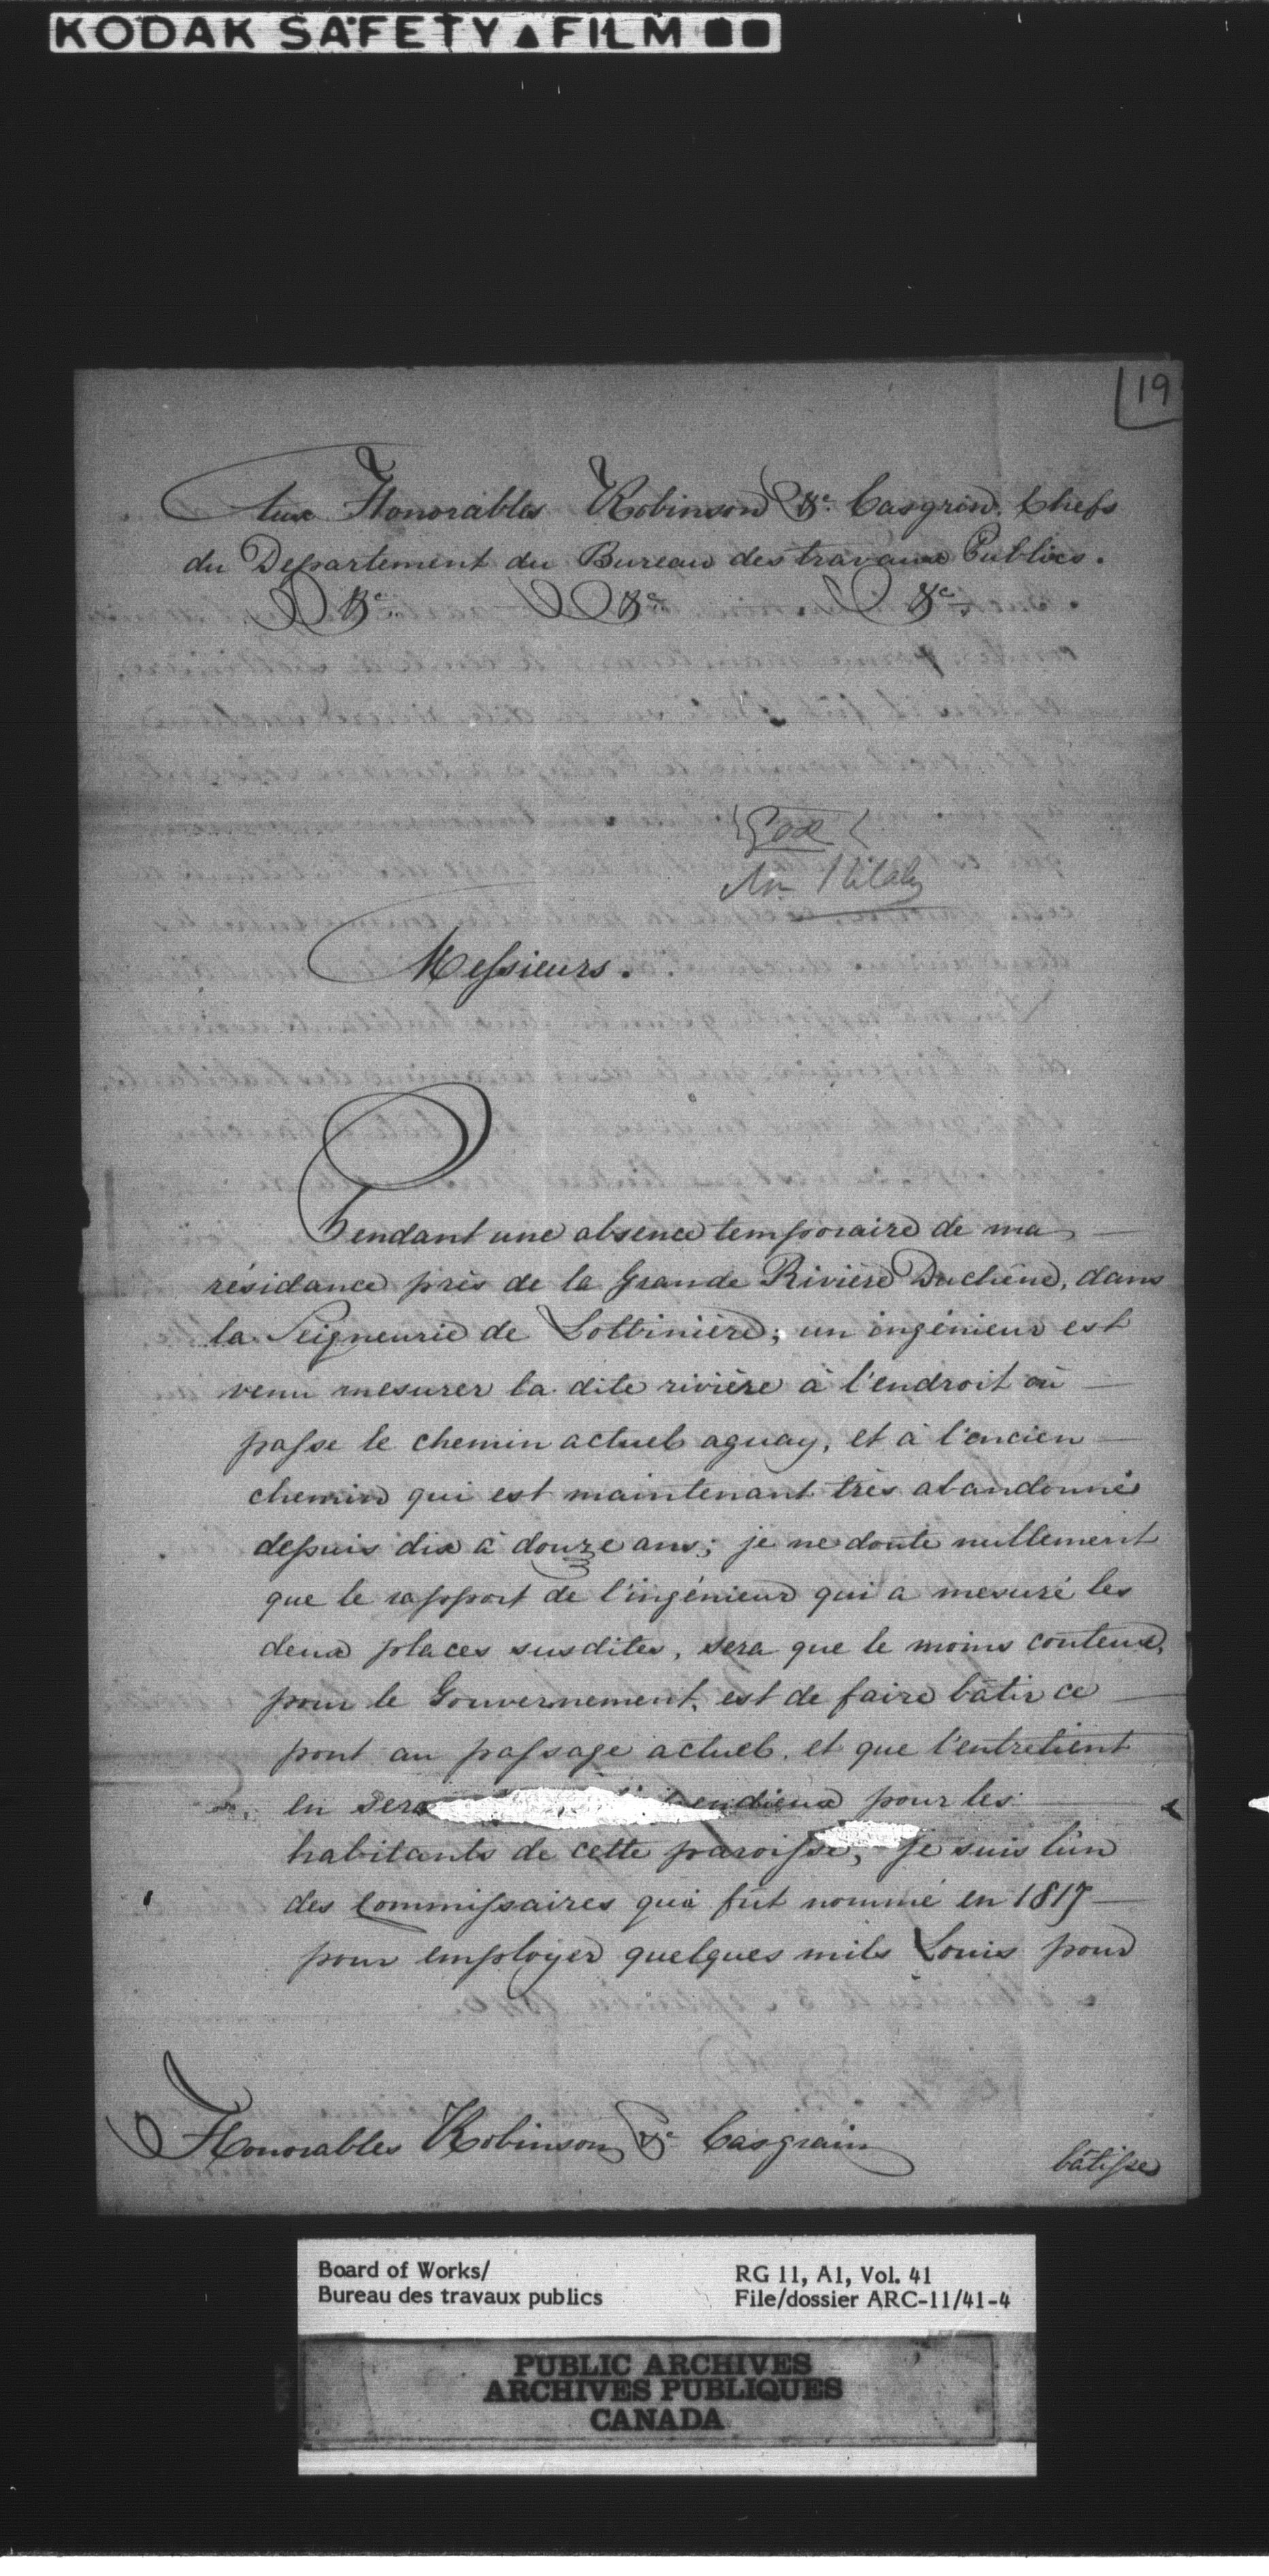 KODAK SAFETY ▲ FILM
19
Aux Honorables Robinson &c. Casgrin. Chefs
du Departement du Bureau des travaux Publics.
&c. &c. &c.
Messieurs.
Pendant une absence temporaire de ma
résidance près de la Grande Rivière Duchêne, dans
la Seigneurie de Lotbinière; un ingénieur est
venu mesurer la dite rivière à l'endroit où
passe le chemin actuel aguay, et à l'ancien
chemin qui est maintenant très abandonné
depuis dix à douze ans; je ne doute nullement
que le rapport de l'ingénieur qui a mesuré les
deux places susdites, sera que le moins couteux,
pour le Gouvernement, est de faire bâtir ce
pont au passage actuel, et que l'entretient
en sera pour les
habitants de cette paroisse, je suis l'un
des Commissaires qui fût nommé en 1817
pour employer quelques mils Louis pour
Honorables Robinson &c Casgrain
bâtisse
Board of Works/
Bureau des travaux publics
RG 11, A1, Vol. 41
File/dossier ARC-11/41-4
PUBLIC ARCHIVES
ARCHIVES PUBLIQUES
CANADA